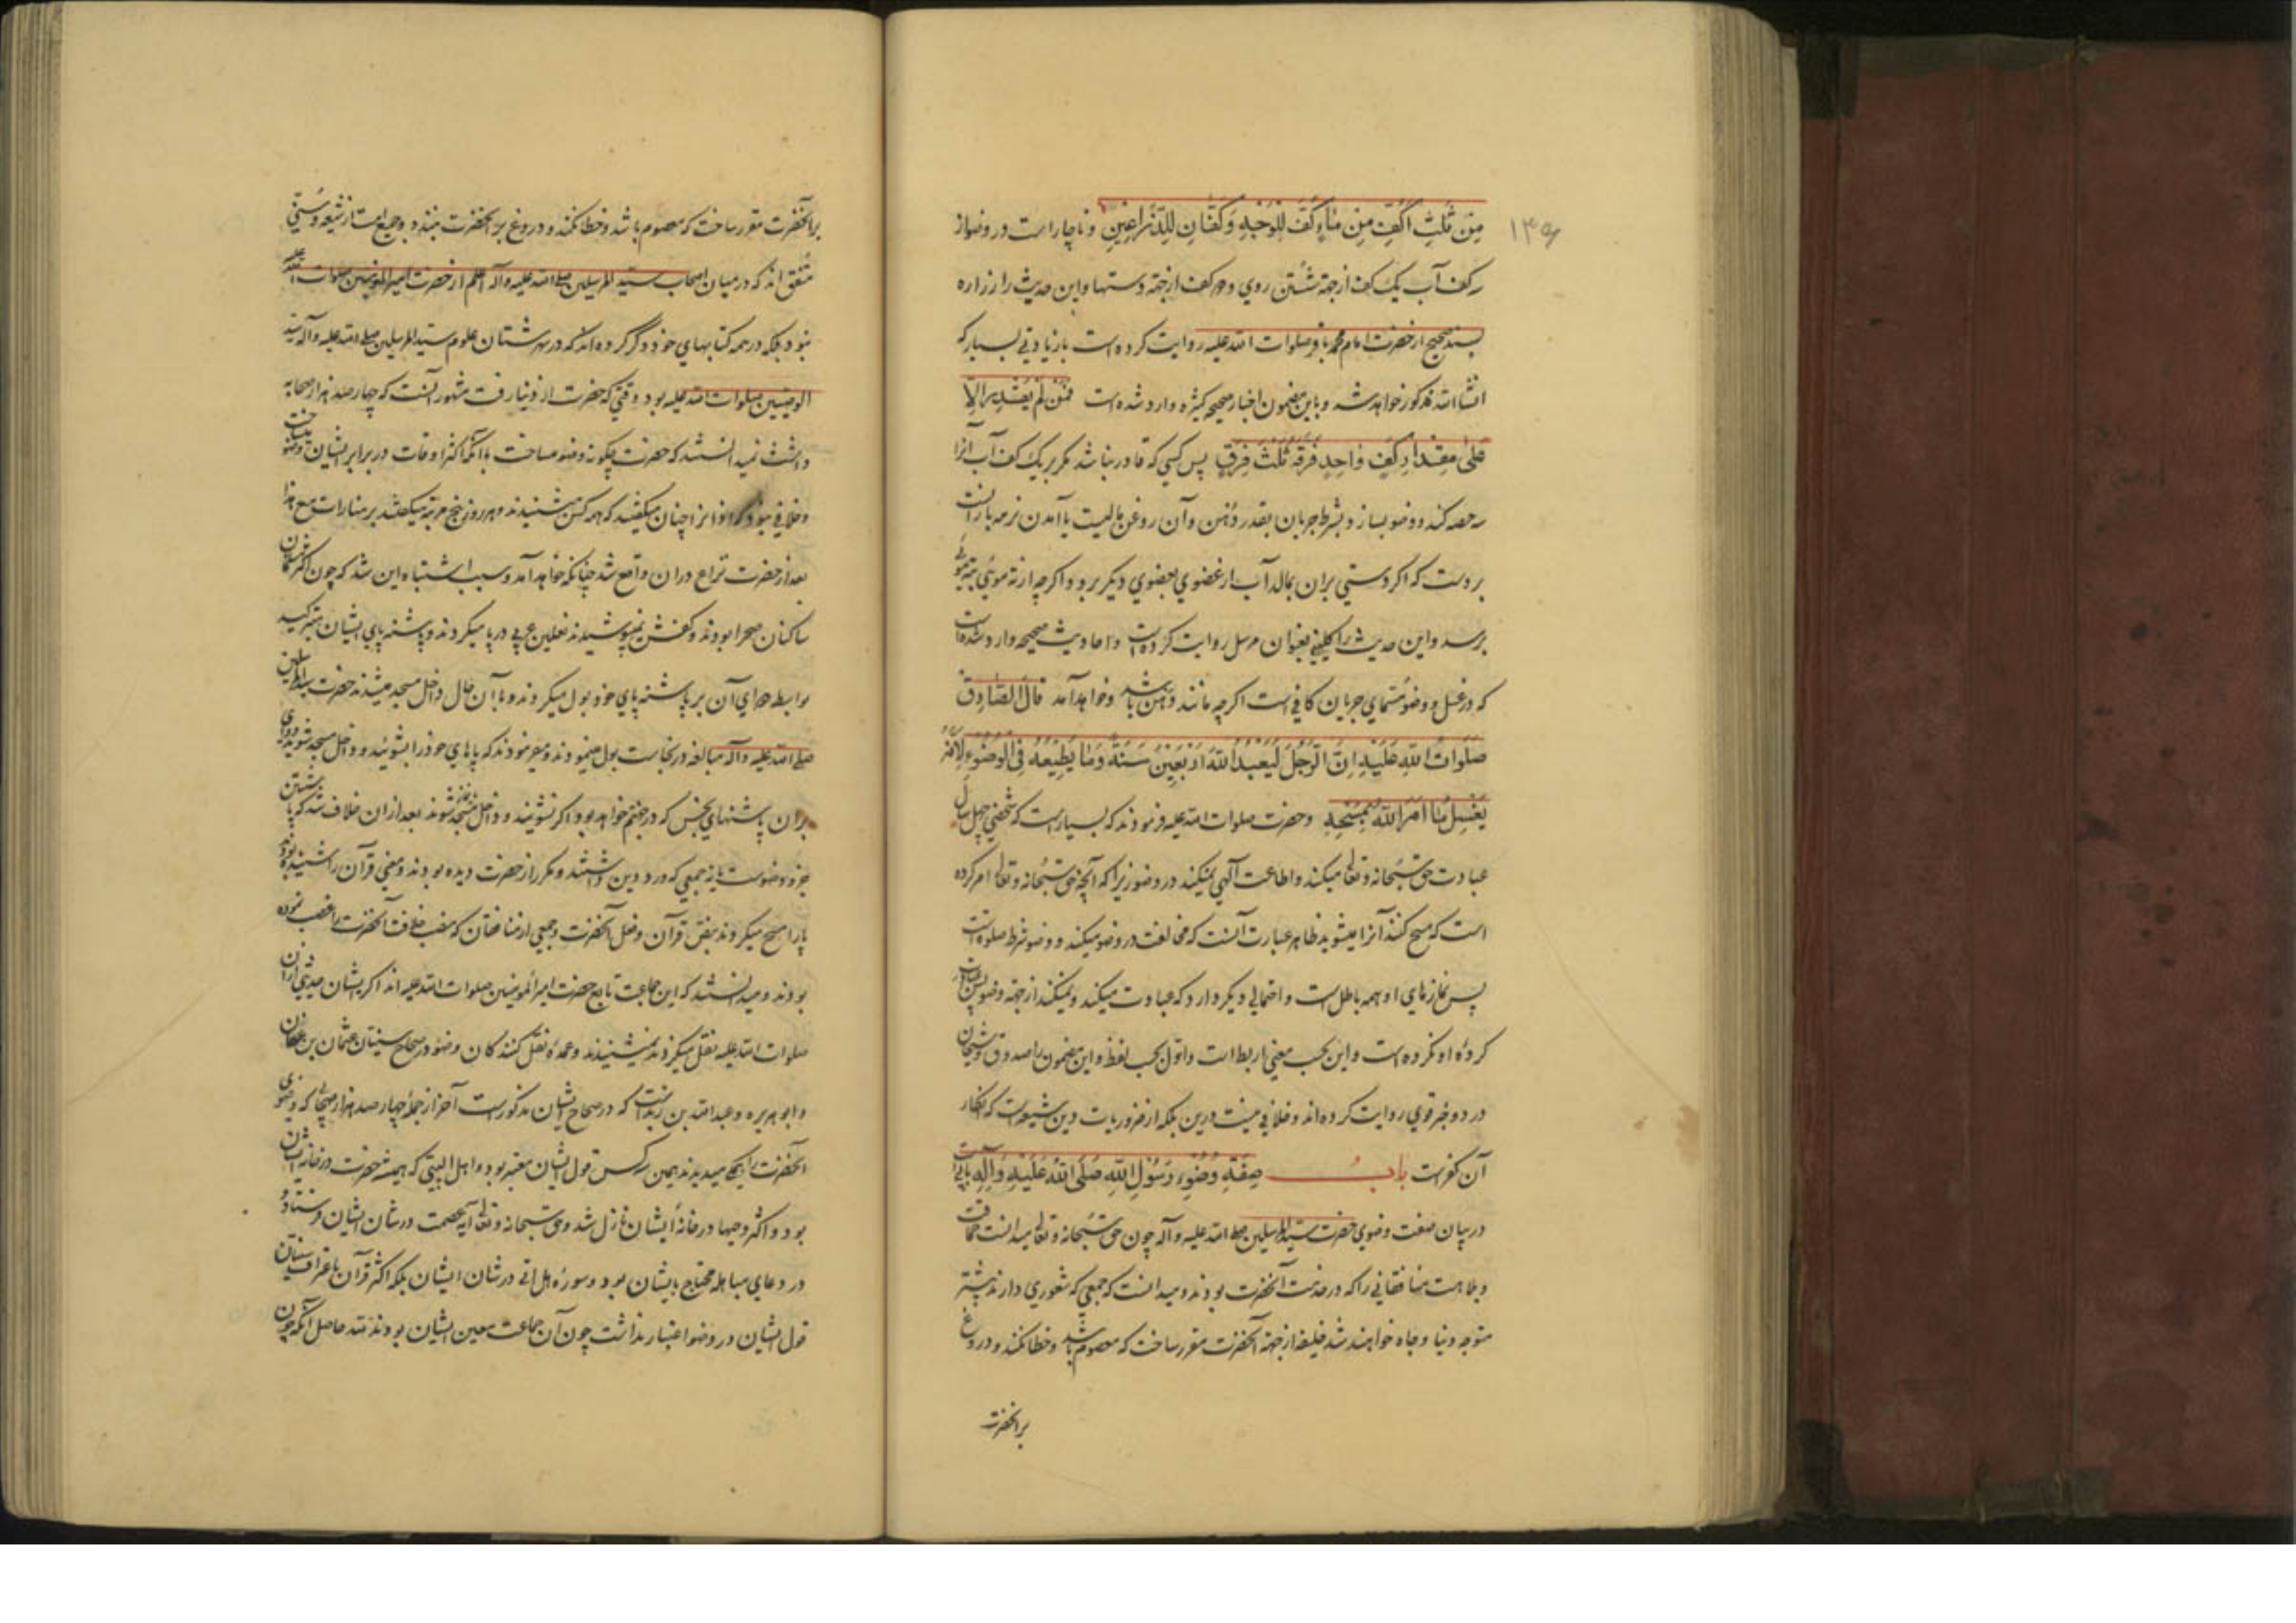 ۱۳۵
مِن ثَلٰثِ اَكُفٍّ مِن مٰاءٍ كَفٌّ لِلْوَجْهِ وَكَفّٰانِ لِلذِّرٰاعَيْنِ و ناچار است در وضو از
سه کف آب یک کف از جهة شستن روی و دو کف از جهة دستها و این حدیث را زراره
بسند صحیح از حضرت امام محمد باقر صلوات الله علیه روایت کرده است بازیادتی بسیار که
انشاء الله مذکور خواهد شد و باین مضمون اخبار صحیحه کثیره وارد شده است فَمَن لَمْ يَقْدِر اِلّٰا
عَلىٰ مِقْدٰارِ كَفٍّ وٰاحِدٍ فَرَّقَهُ ثَلٰثَ فِرَقٍ پس کسی که قادر نباشد مکر بر یک کف آب آنرا
سه حصه کند و وضو بسازد بشرط جریان بقدر دهن و آن روغن مالیست یا آمدن نرمه باران
بر دست که اکر دستی بران بمالد آب از عضوی بعضوی دیکر برود و اکرچه از ته موئی به ته موئی
برسد و این حدیث را کلینی بعنوان مرسل روایت کرده است و احادیث صحیحه وارد شده است
که در غسل و وضو مسمای جریان کافی است اکرچه مانند دهن باشد و خواهد آمد قٰالَ الصّٰادِق
صَلَوٰاتُ اللهِ عَلَيْهِ اِنَّ الرَّجُلَ لَيَعْبُدُ اللهَ اَرْبَعِيْنَ سَنَةً وَمٰا يُطِيْعُهُ فِى الْوُضُوءِ لِاَنَّهُ
يَغْسِلُ مٰا اَمَرَ اللهُ بِمَسْحِهِ و حضرت صلوات الله علیه فرمودند که بسیار است که شخصی چهل سال
عبادت حق سبحانه و تعالی میکند و اطاعت آلهی نمیکند در وضو زیرا که آنچه حق سبحانه و تعالی امر کرده
است که مسح کنند آنرا میشوید ظاهر عبارت آنست که مخالفت در وضو میکند و وضو شرط صلوة است
پس نمازهای او همه باطل است و احتمالی دیکر دارد که عبادت میکند و نمیکند از جهة وضو پس عبادت
کرده او نکرده است و این بحسب معنی اربط است و اول بحسب لفظ و این مضمون را صدوق و شیخان
در دو خبر قوی روایت کرده اند و خلافی نیست درین بلکه از ضروریات دین شیعه است که انکار
آن کفر است بابُ صِفَةِ وُضُوءِ رَسُوْلِ اللهِ صَلَّى اللهُ عَلَيْهِ وَآلِهِ بابی است
در بیان صفت وضوی حضرت سید المرسلین صلی الله علیه و آله چون حق سبحانه و تعالی میدانست حماقت
و بلاهت منافقانی را که در خدمت آنحضرت بودند و میدانست که جمعی که شعوری دارند بیشتر
متوجه دنیا و جاه خواهند شد خلیفه از جهة آنحضرت مقرر ساخت که معصوم باشد و خطا نکند و دروغ
برانحضرت
برآنحضرت مقرر ساخت که معصوم باشد و خطا نکند و دروغ بر آنحضرت نبندد و جمیع امت از شیعه و سنی
متفق اند که در میان اصحاب سید المرسلین صلی الله علیه و آله اعلم از حضرت امیر المؤمنین صلوات الله علیه
نبود بلکه در همه کتابهای خود ذکر کرده اند که در شهرستان علوم سید المرسلین صلی الله علیه و آله سید
الوصیین صلوات الله علیه بود و وقتی که حضرت از دنیا رفت مشهور آنست که چهار صد هزار صحابه
داشت نمیدانستند که حضرت چکونه وضو میساخت با آنکه اکثر اوقات در برابر ایشان وضو میساخت
و خلافی نبود که اذان را چنان میکفتند که همه کس میشنیدند و هر روز پنج مرتبه میکفتند بر منارات مع هذا
بعد از حضرت نزاع دران واقع شد چنانکه خواهد آمد و سبب اشتباه این شد که چون اکثر مسلمانان
ساکنان صحرا بودند و کفش نمیپوشیدند نعلین عربی در پا میکردند و پاشنه پای ایشان میترکید
بواسطه دوای آن بر پاشنه پای خود بول میکردند و با آن حال داخل مسجد میشدند حضرت سید المرسلین
صلی الله علیه و آله مبالغه در نجاست بول مینمودند و میفرمودند که پاهای خود را بشوئید و داخل مسجد شوید و وای
بران پاشنهای نجس که در جهنم خواهد بود اکر نشویند و داخل مسجد شوند بعد ازان خلاف شد که پا شستن
جزو وضوست یا نه جمعی که درد دین داشتند و مکرر از حضرت دیده بودند و معنی قرآن را شنیده بودند
پا را مسح میکردند بنص قرآن و فعل آنحضرت و جمعی از منافقان که منصب خلافت آنحضرت را غصب نموده
بودند و میدانستند که این جماعت تابع حضرت امیر المؤمنین صلوات الله علیه اند اکر ایشان حدیثی از آن
صلوات الله علیه نقل میکردند نمیشنیدند و عمده نقل کنندکان وضو در صحاح سنیان عثمان بن عفان
و ابو هریره و عبد الله بن زید است که در صحاح ایشان مذکور است آخر از جمله چهار صد هزار صحابی که وضوی
آنحضرت را میدیدند همین سه کس قول ایشان معتبر بود و اهل البیتی که همیشه حضرت در خانه ایشان
بود و اکثر وحیها در خانه ایشان نازل شد و حق سبحانه و تعالی آیه عصمت در شان ایشان فرستاد و
در دعای مباهله محتاج بایشان بود و سوره هل اتی در شان ایشان بلکه اکثر قرآن باعتراف سنیان
قول ایشان در وضو اعتبار نداشت چون آن جماعت معین ایشان بودند حاصل آنکه چون